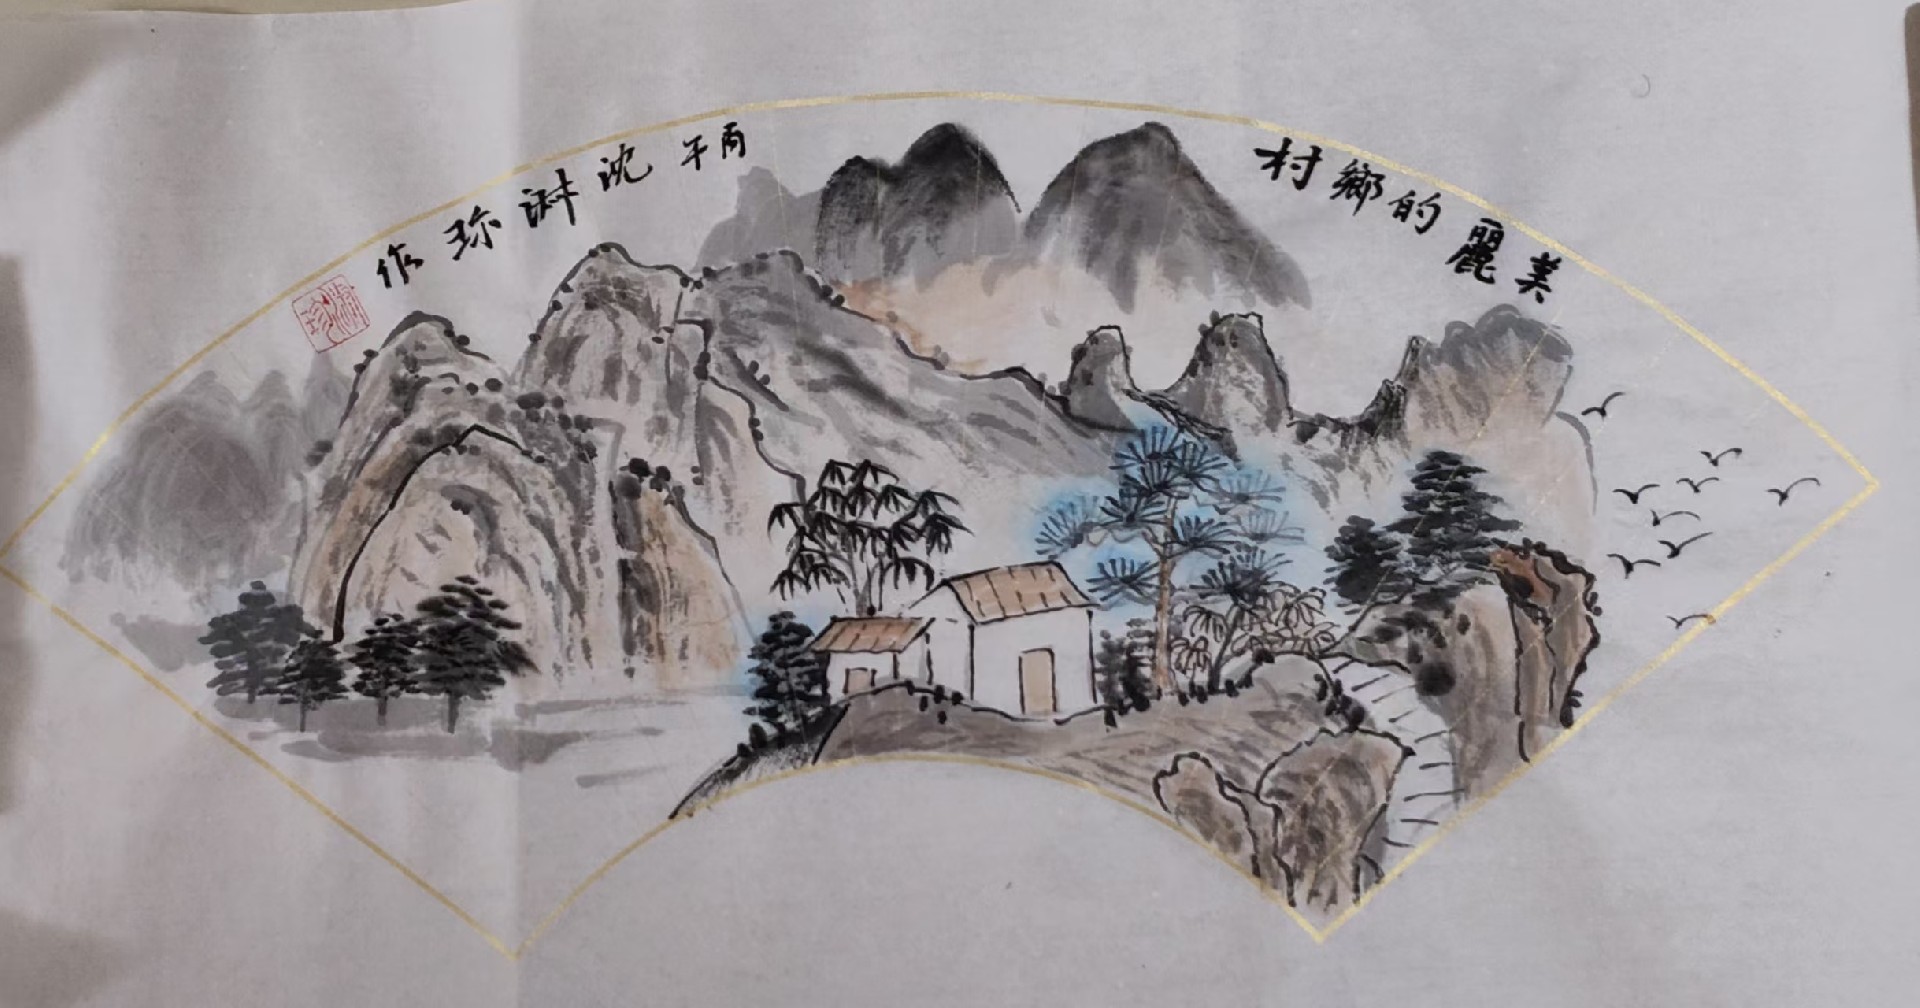 美麗的鄉村
丙午 沈渊珎作